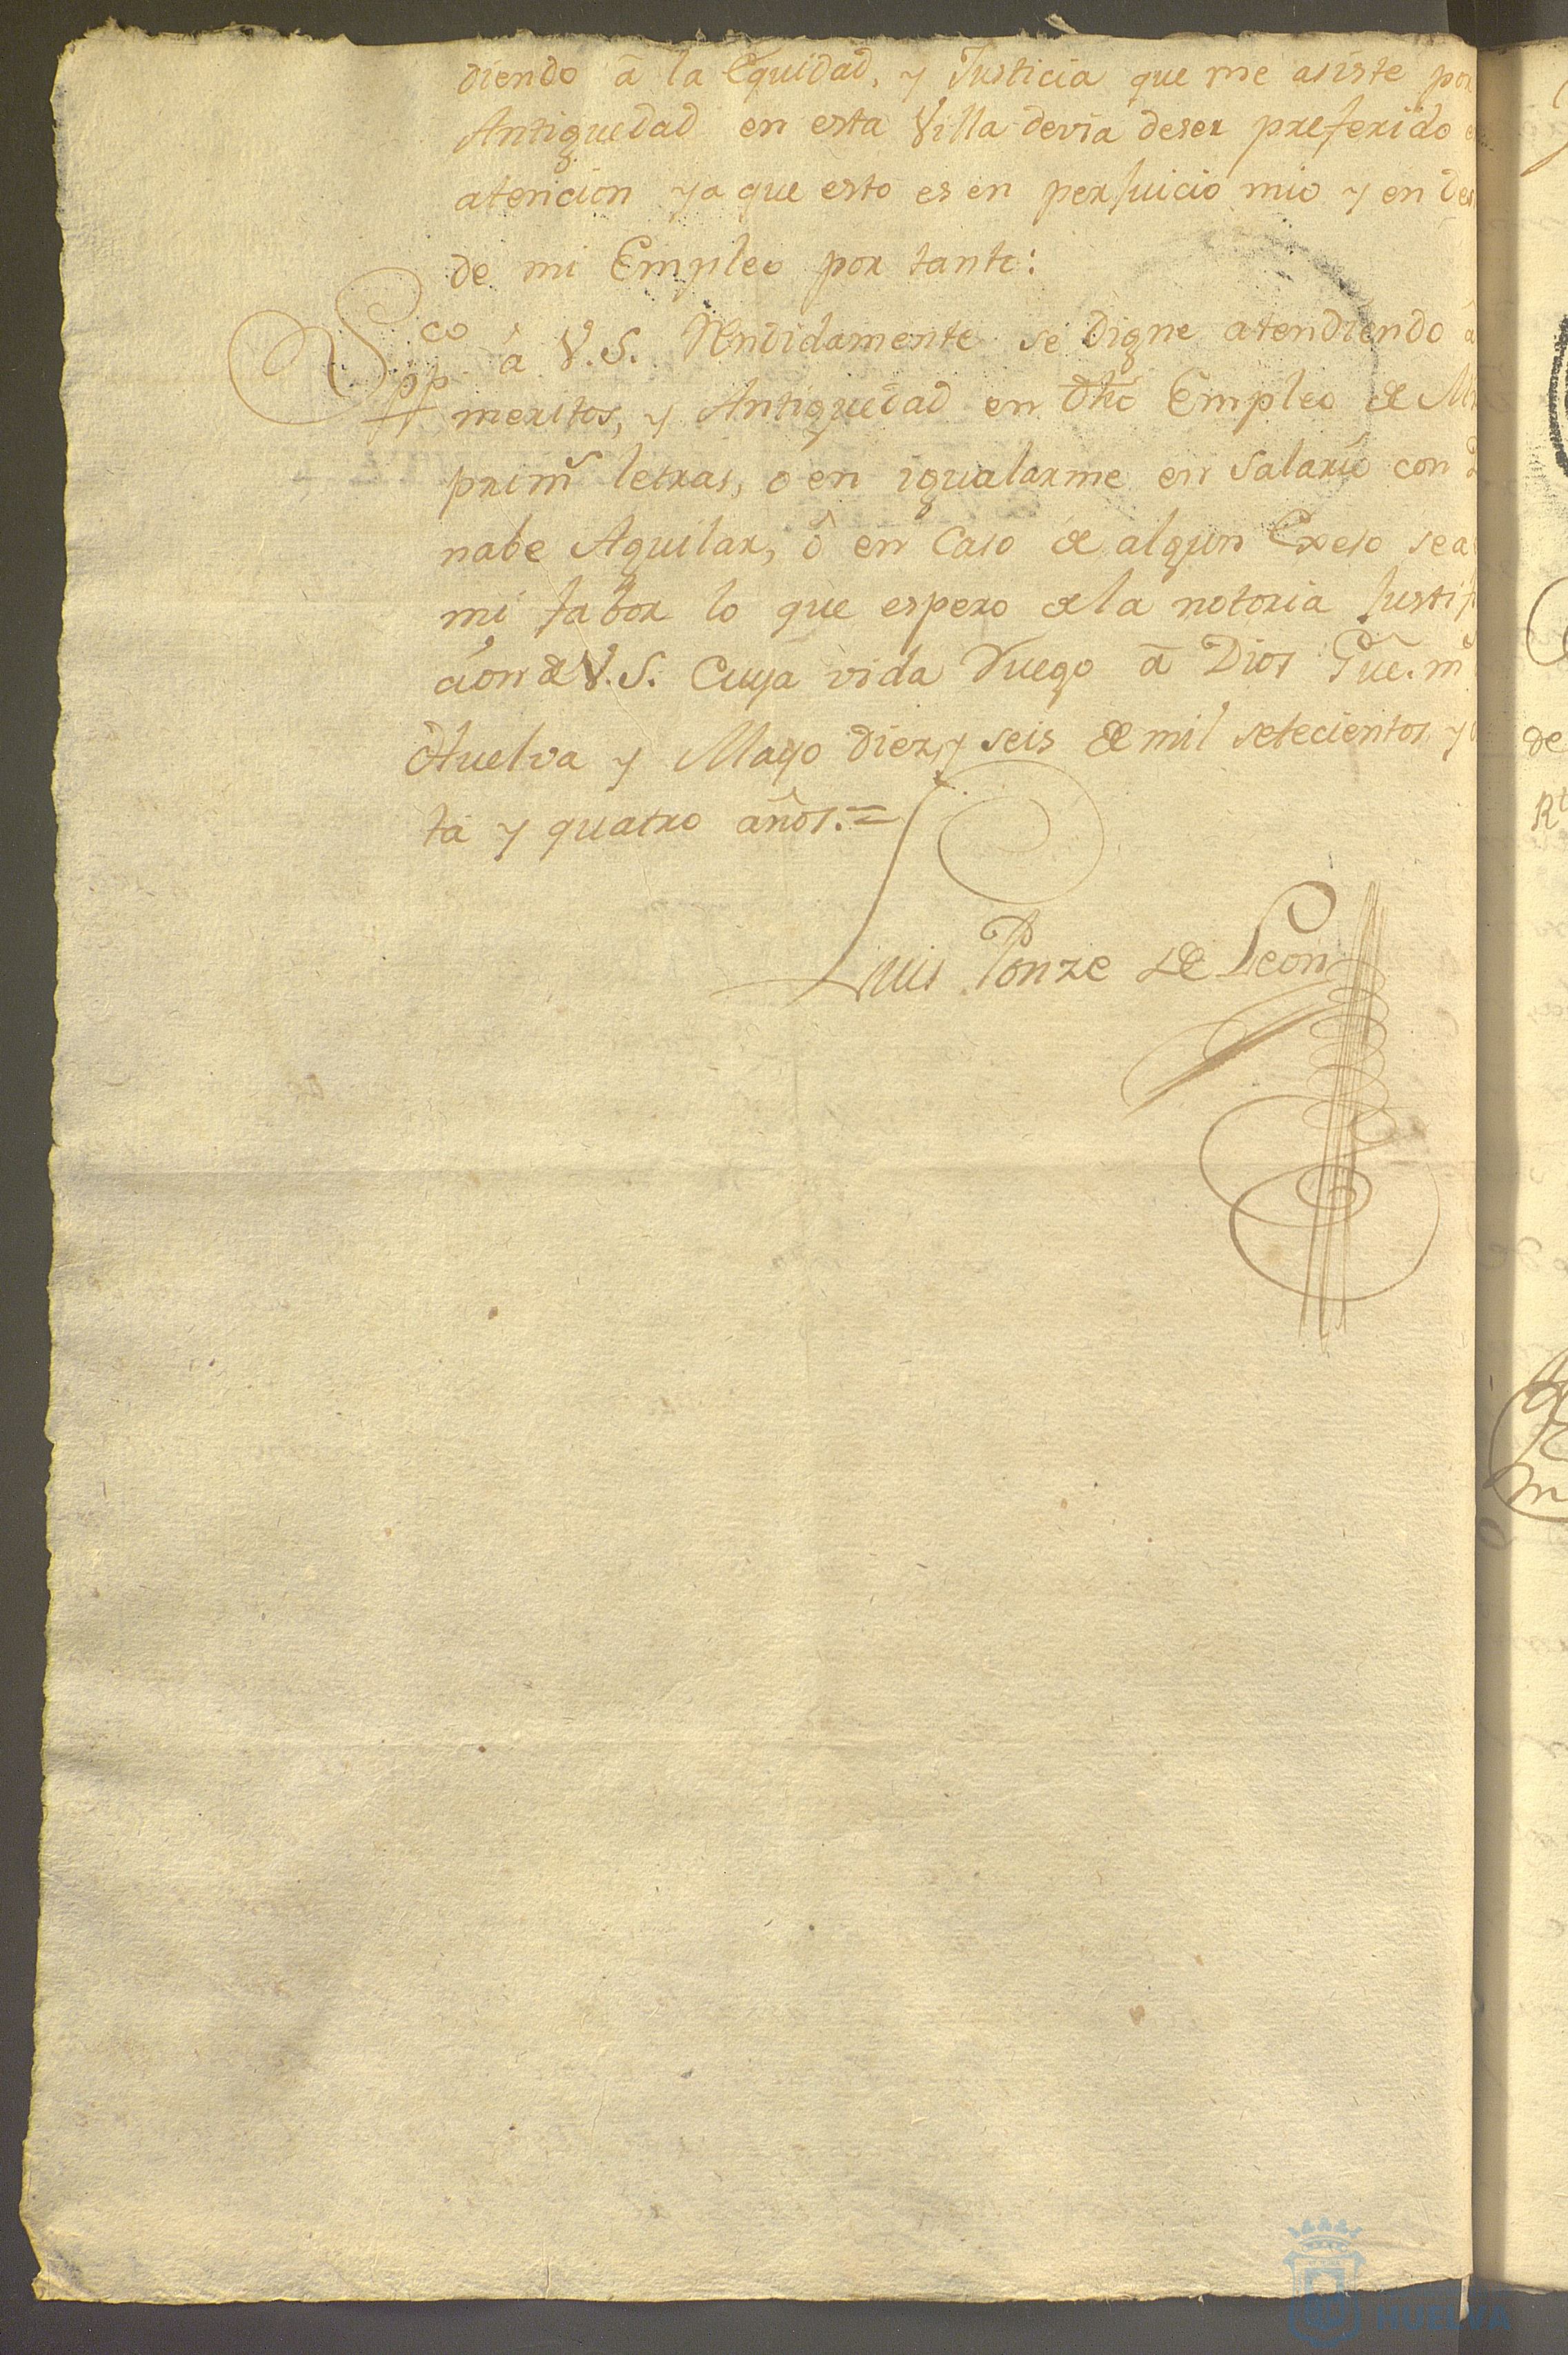 diendo â la Equidad, y Justicia que me asiste por
Antiguedad en esta Villa devia deser preferido
atencion ya que esto es en perjuicio mio y en
de mi Empleo por tanto:
Suppco â V.S. Rendidamente se digne atendiendo â
meritos, y Antiguedad en dho Empleo de
prims letras, o en igualarme en Salario con
nabe Aguilar, ô en Caso de algun Exeso sea
mi fabor lo que espero de la notoria Justif
cion de V.S. Cuya vida Ruego â Dios Gue. ms
Huelva y Mayo diez y seis de mil setecientos y
ta y quatro años.=
Luis Ponze de Leon
de
HUELVA